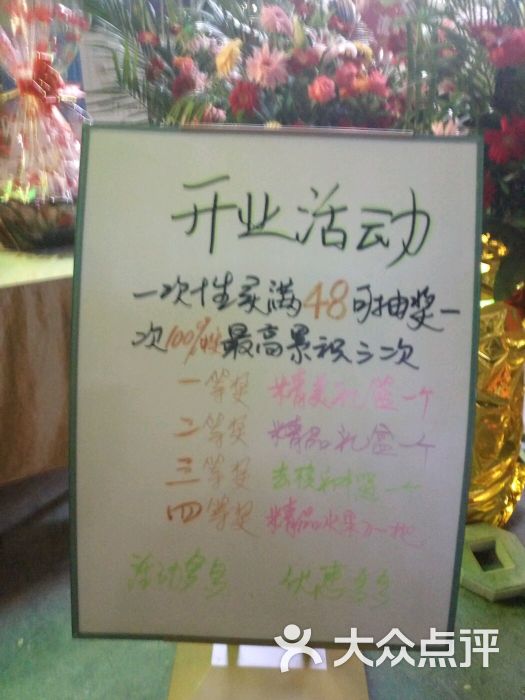 开业活动
一次性买满48可抽奖一
次100% 最高累积三次
一等奖 精美礼篮一个
二等奖 精品礼盒一个
三等奖 一个
四等奖 精品水果一
活动多多 优惠多多
大众点评